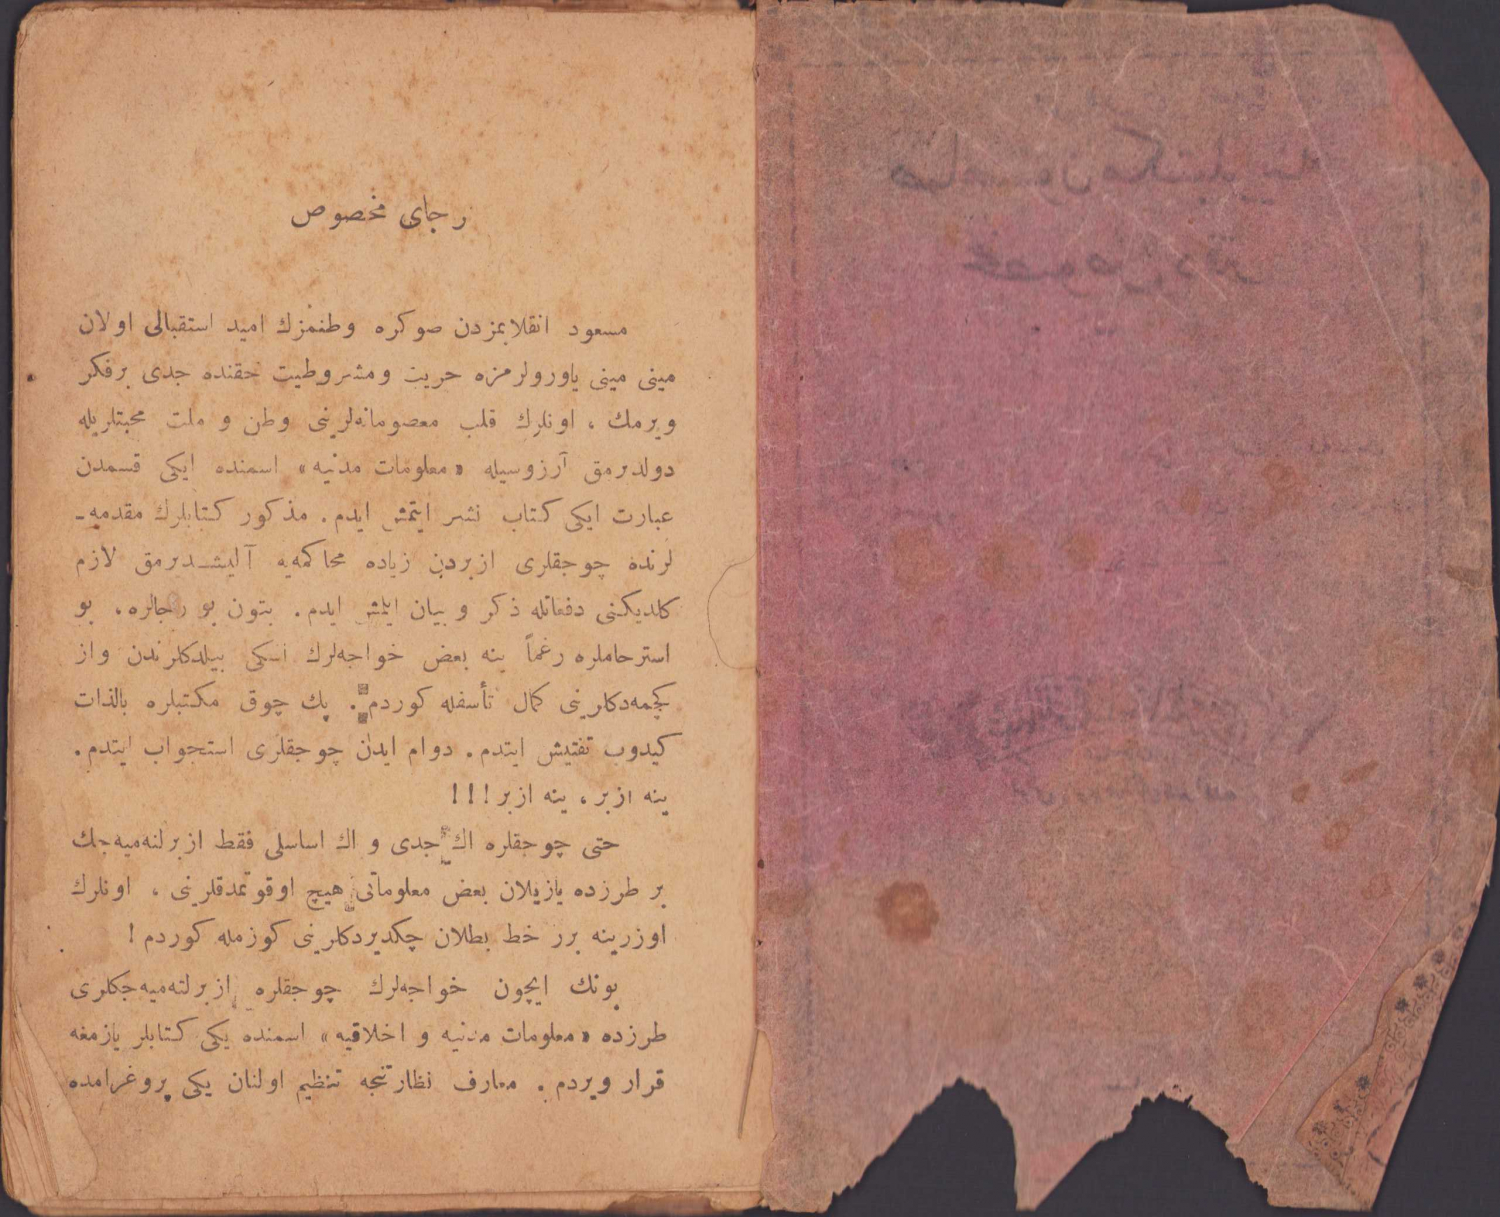 رجای مخصوص
مسعود انقلابمزدن صوكره وطنمزك امید استقبالی اولان
مینی مینی یاورولرمزه حریت ومشروطیت حقنده جدی برفكر
ویرمك ، اونلرك قلب معصومانه‌لرینی وطن و ملت محبتلریله
دولدیرمق آرزوسیله «معلومات مدنیه» اسمنده ایكی قسمدن
عبارت ایكی كتاب نشر ایتمش ایدم . مذكور كتابلرك مقدمه‌ـ
لرنده چوجقلری ازبردن زیاده محاكمه‌یه آلیشـدیرمق لازم
كلدیكنی دفعاتله ذكر و بیان ایلمش ایدم . بتون بو رجالره ، بو
استرحاملره رغماً ینه بعض خواجه‌لرك اسكی بیلدكلرندن واز
كچمه‌دكلرینی كمال تأسفله كوردم . پك چوق مكتبلره بالذات
كیدوب تفتیش ایتدم . دوام ایدن چوجقلری استجواب ایتدم .
ینه ازبر ، ینه ازبر !!!
حتی چوجقلره اك جدی و اك اساسلی فقط ازبرلنه‌میه‌جك
بر طرزده یازیلان بعض معلوماتی هیچ اوقوتمدقلرینی ، اونلرك
اوزرینه برر خط بطلان چكدیردكلرینی كوزمله كوردم !
بونك ایچون خواجه‌لرك چوجقلره ازبرلته‌میه‌جكلری
طرزده «معلومات مدنیه و اخلاقیه» اسمنده یكی كتابلر یازمغه
قرار ویردم . معارف نظارتنجه تنظیم اولنان یكی پروغرامده